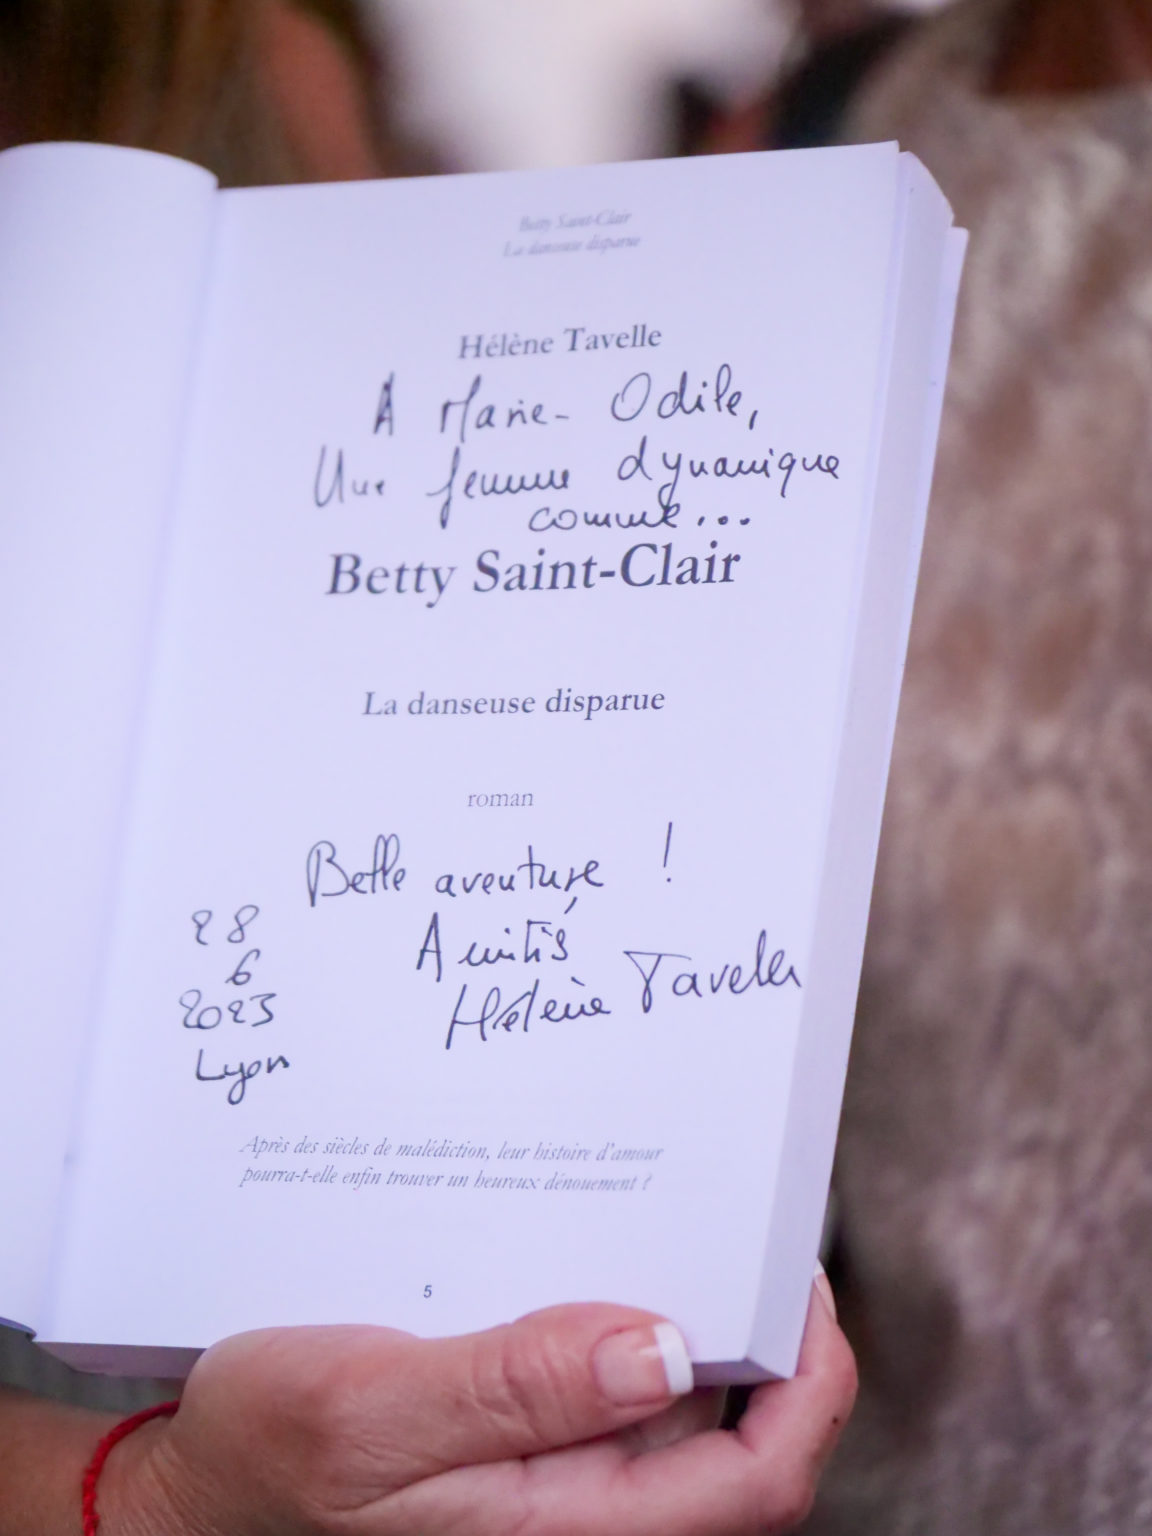 Betty Saint-Clair
La danseuse disparue
Hélène Tavelle
A Marie-Odile,
Une femme dynamique
comme...
Betty Saint-Clair
La danseuse disparue
roman
Belle aventure !
Amitiés
Hélène Tavelle
28
6
2023
Lyon
Après des siècles de malédiction, leur histoire d'amour
pourra-t-elle enfin trouver un heureux dénouement ?
5